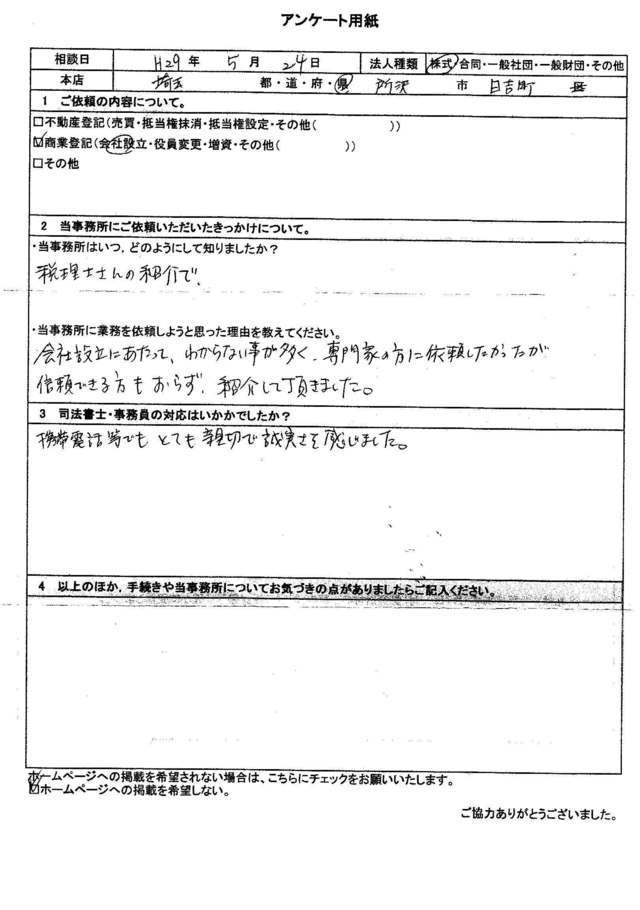 アンケート用紙
相談日 H29年 5月 24日 法人種類 株式・合同・一般社団・一般財団・その他
本店 埼玉 都・道・府・県 所沢 市 日吉町 区
1 ご依頼の内容について。
□不動産登記(売買・抵当権抹消・抵当権設定・その他( ))
☑商業登記(会社設立・役員変更・増資・その他( ))
□その他
2 当事務所にご依頼いただいたきっかけについて。
・当事務所はいつ，どのようにして知りましたか？
税理士さんの紹介で、
・当事務所に業務を依頼しようと思った理由を教えてください。
会社設立にあたって、わからない事が多く、専門家の方に依頼したかったが
信頼できる方もおらず、紹介して頂きました。
3 司法書士・事務員の対応はいかかでしたか？
携帯電話等でも とても親切で誠実さを感じました。
4 以上のほか，手続きや当事務所についてお気づきの点がありましたらご記入ください。
ホームページへの掲載を希望されない場合は、こちらにチェックをお願いいたします。
☑ホームページへの掲載を希望しない。
ご協力ありがとうございました。